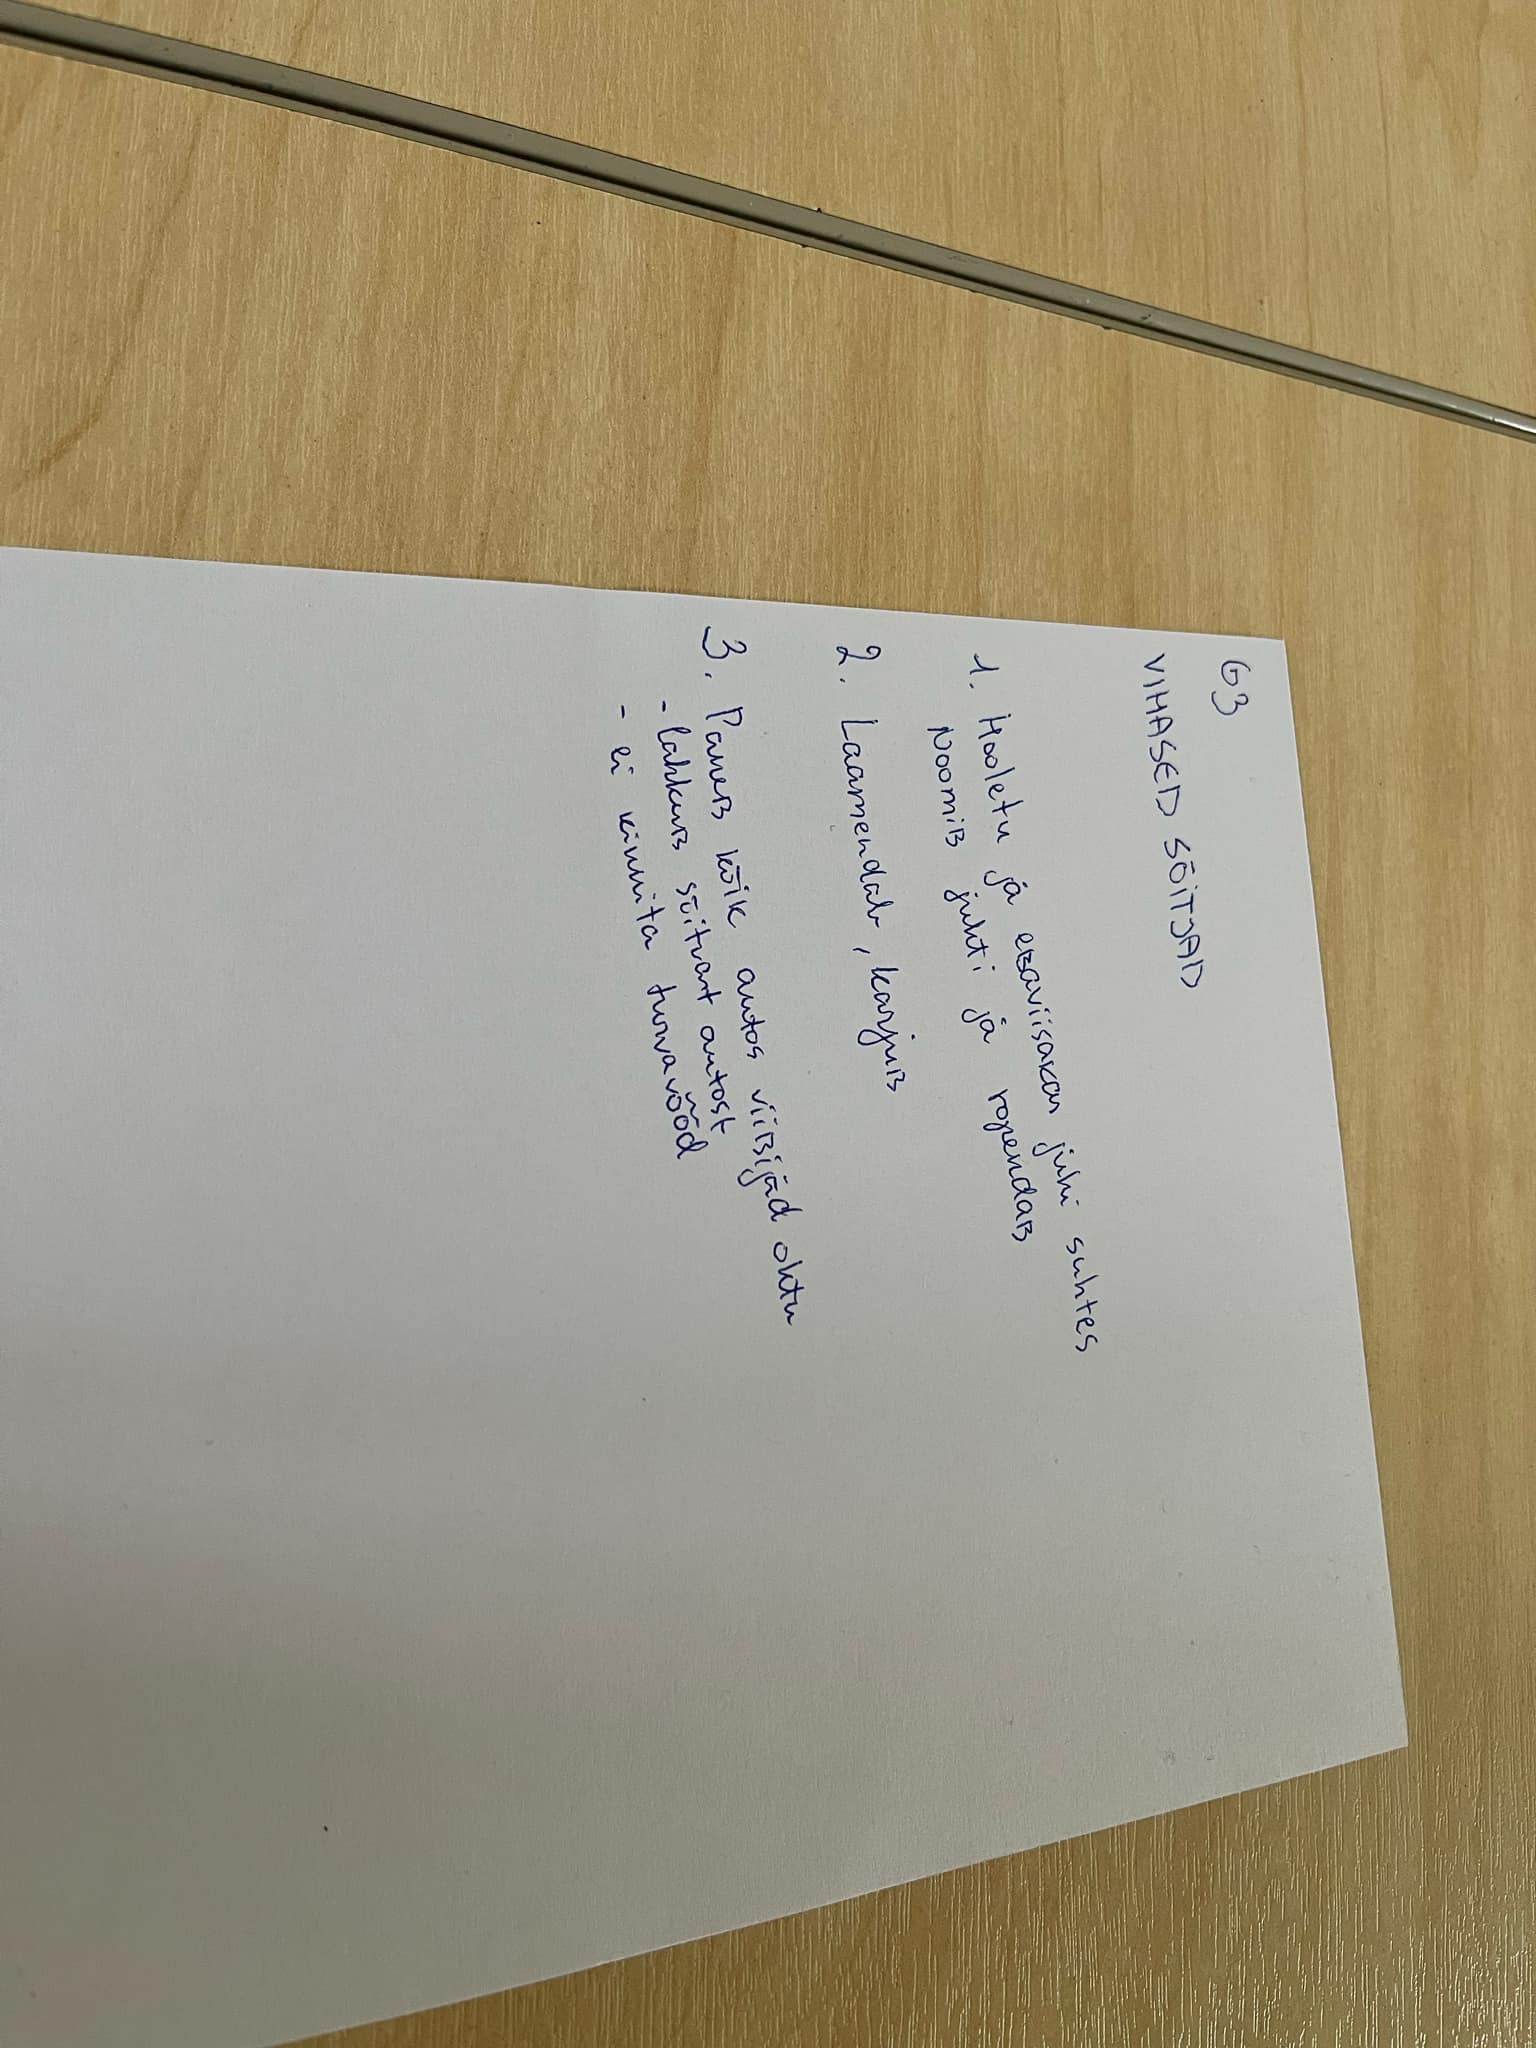 G3
VIHASED SÕITJAD
1. Hooletu ja ebaviisakas juhi suhtes
Noomib juhti ja ropendab
2. Laamendab, karjub
3. Paneb kõik autos viibijad ohtu
- lahkub sõitvast autost
- ei kinnita turvavööd